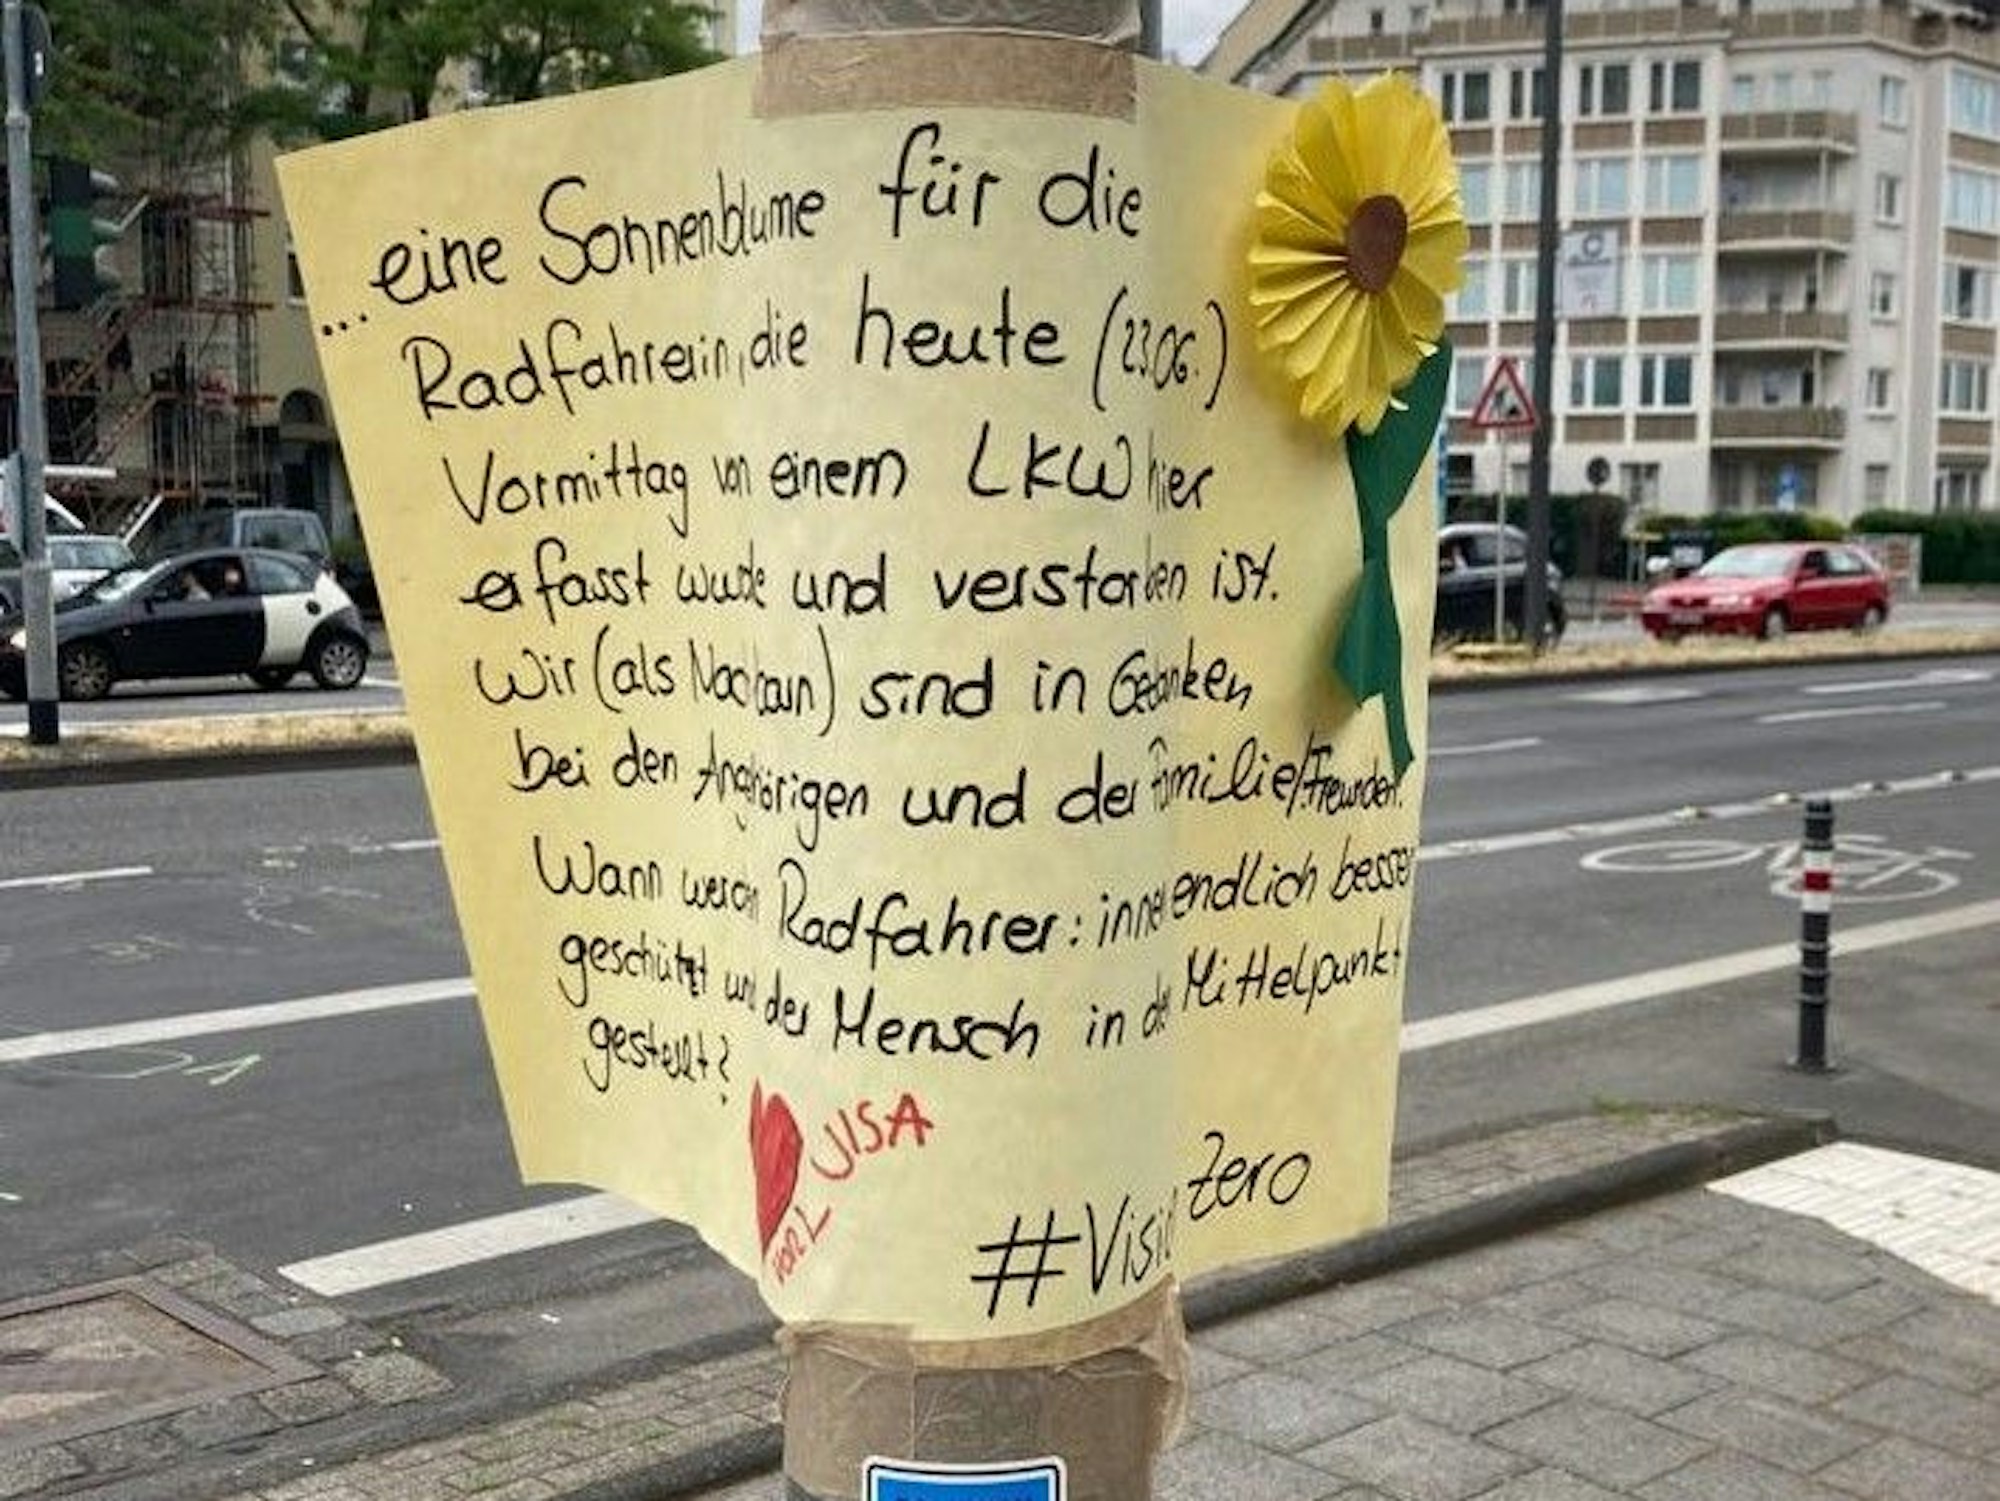 ...eine Sonnenblume für die
Radfahrerin, die heute (23.06.)
Vormittag von einem LKW hier
erfasst wurde und verstorben ist.
Wir (als Nachbarn) sind in Gedanken
bei den Angehörigen und der Familie/Freunden.
Wann werden Radfahrer:innen endlich besser
geschützt und der Mensch in den Mittelpunkt
gestellt?
VISA
#Vision Zero